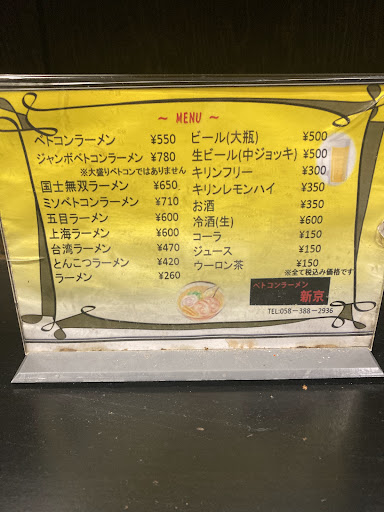 ~ MENU ~
ベトコンラーメン ¥550
ジャンボベトコンラーメン ¥780
※大盛りベトコンではありません
国士無双ラーメン ¥650
ミソベトコンラーメン ¥710
五目ラーメン ¥600
上海ラーメン ¥600
台湾ラーメン ¥470
とんこつラーメン ¥420
ラーメン ¥260
ビール(大瓶) ¥500
生ビール(中ジョッキ) ¥500
キリンフリー ¥300
キリンレモンハイ ¥350
お酒 ¥350
冷酒(生) ¥600
コーラ ¥150
ジュース ¥150
ウーロン茶 ¥150
※全て税込み価格です
ベトコンラーメン
新京
TEL:058-388-2936